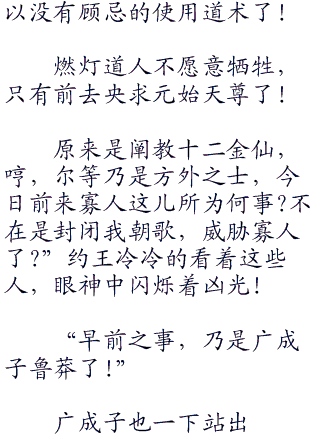 以没有顾忌的使用道术了!
燃灯道人不愿意牺牲，
只有前去央求元始天尊了!
原来是阐教十二金仙，
哼，尔等乃是方外之士，今
日前来寡人这儿所为何事?不
在是封闭我朝歌，威胁寡人
了?”约王冷冷的看着这些
人，眼神中闪烁着凶光!
“早前之事，乃是广成
子鲁莽了!”
广成子也一下站出